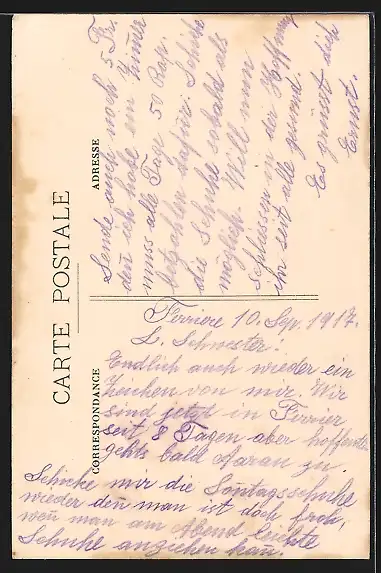 CARTE POSTALE
CORRESPONDANCE
ADRESSE
Ferriere 10. Sep. 1917.
L. Schwester!
Endlich auch wieder ein
Zeichen von mir. Wir
sind jetzt in Ferrier
seit 8 Tagen aber hoffentl.
gehts bald Aarau zu.
Schicke mir die Sontagsschuhe
wieder den man ist doch froh,
wen man am Abend leichte
Schuhe anziehen kan.
Sende auch noch 5 Fr.
den ich habe ein Zimer
muss alle Tage 50 Rap.
bezahlen dafür. Schick
die Schuhe sobald als
möglich. Will nun
schliessen in der Hoffnung
ihr seit alle gesund.
Es grüsst dich
Ernst.